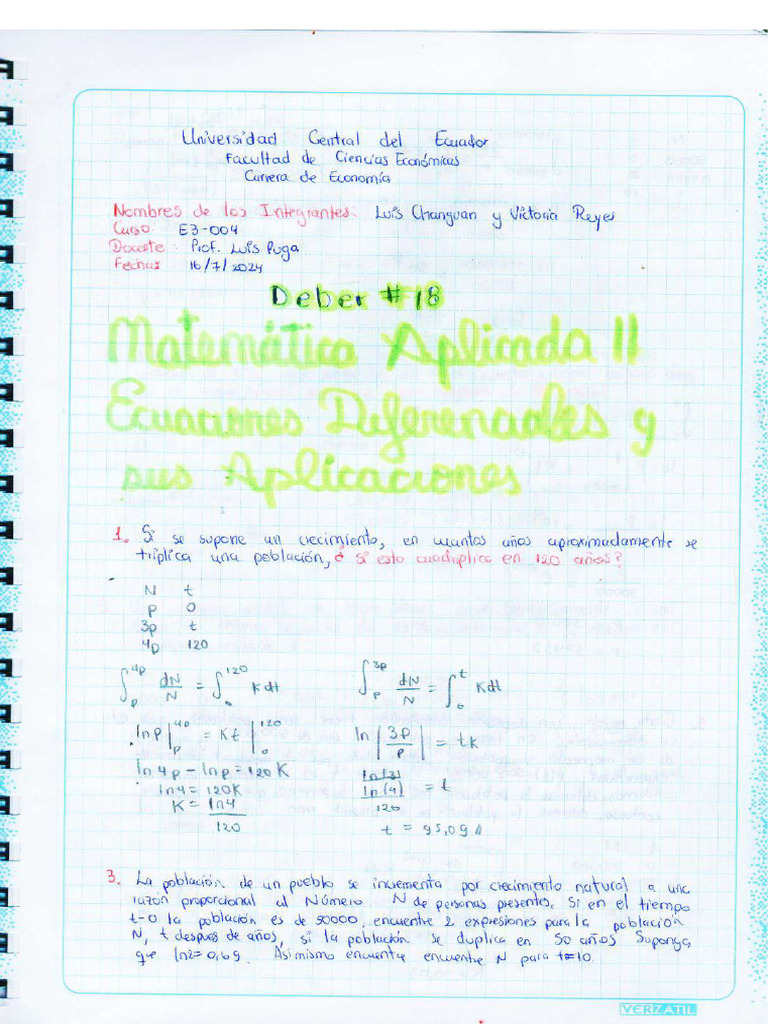 Universidad Central del Ecuador
Facultad de Ciencias Económicas
Carrera de Economía
Nombres de los Integrantes: Luis Changuan y Victoria Reyes
Curso: E3-004
Docente: Prof. Luis Puga
Fecha: 16/7/2024
Deber #18
Matemática Aplicada II
Ecuaciones Diferenciales y
sus Aplicaciones
1. Si se supone un crecimiento, en cuantos años aproximadamente se
triplica una población, ¿ si esta cuadruplica en 120 años?
N t
P 0
3p t
4p 120
∫_p^{4p} dN/N = ∫_0^{120} K dt
∫_p^{3p} dN/N = ∫_0^t K dt
ln P |_p^{4p} = Kt |_0^{120}
ln |3P/P| = tK
ln 4p - ln p = 120 K
ln 4 = 120K
K = ln 4/120
ln(3)/(ln(4)/120) = t
t = 95,09 A
3. La población de un pueblo se incrementa por crecimiento natural a una
razón proporcional al Número N de personas presento. Si en el tiempo
t=0 la población es de 50000, encuentre 2 expresiones para la población
N, t despues de años, si la población se duplica en 50 años Suponga
que ln2=0,69. Asi mismo encuentre encuentre N para t=10.
VERZATIL